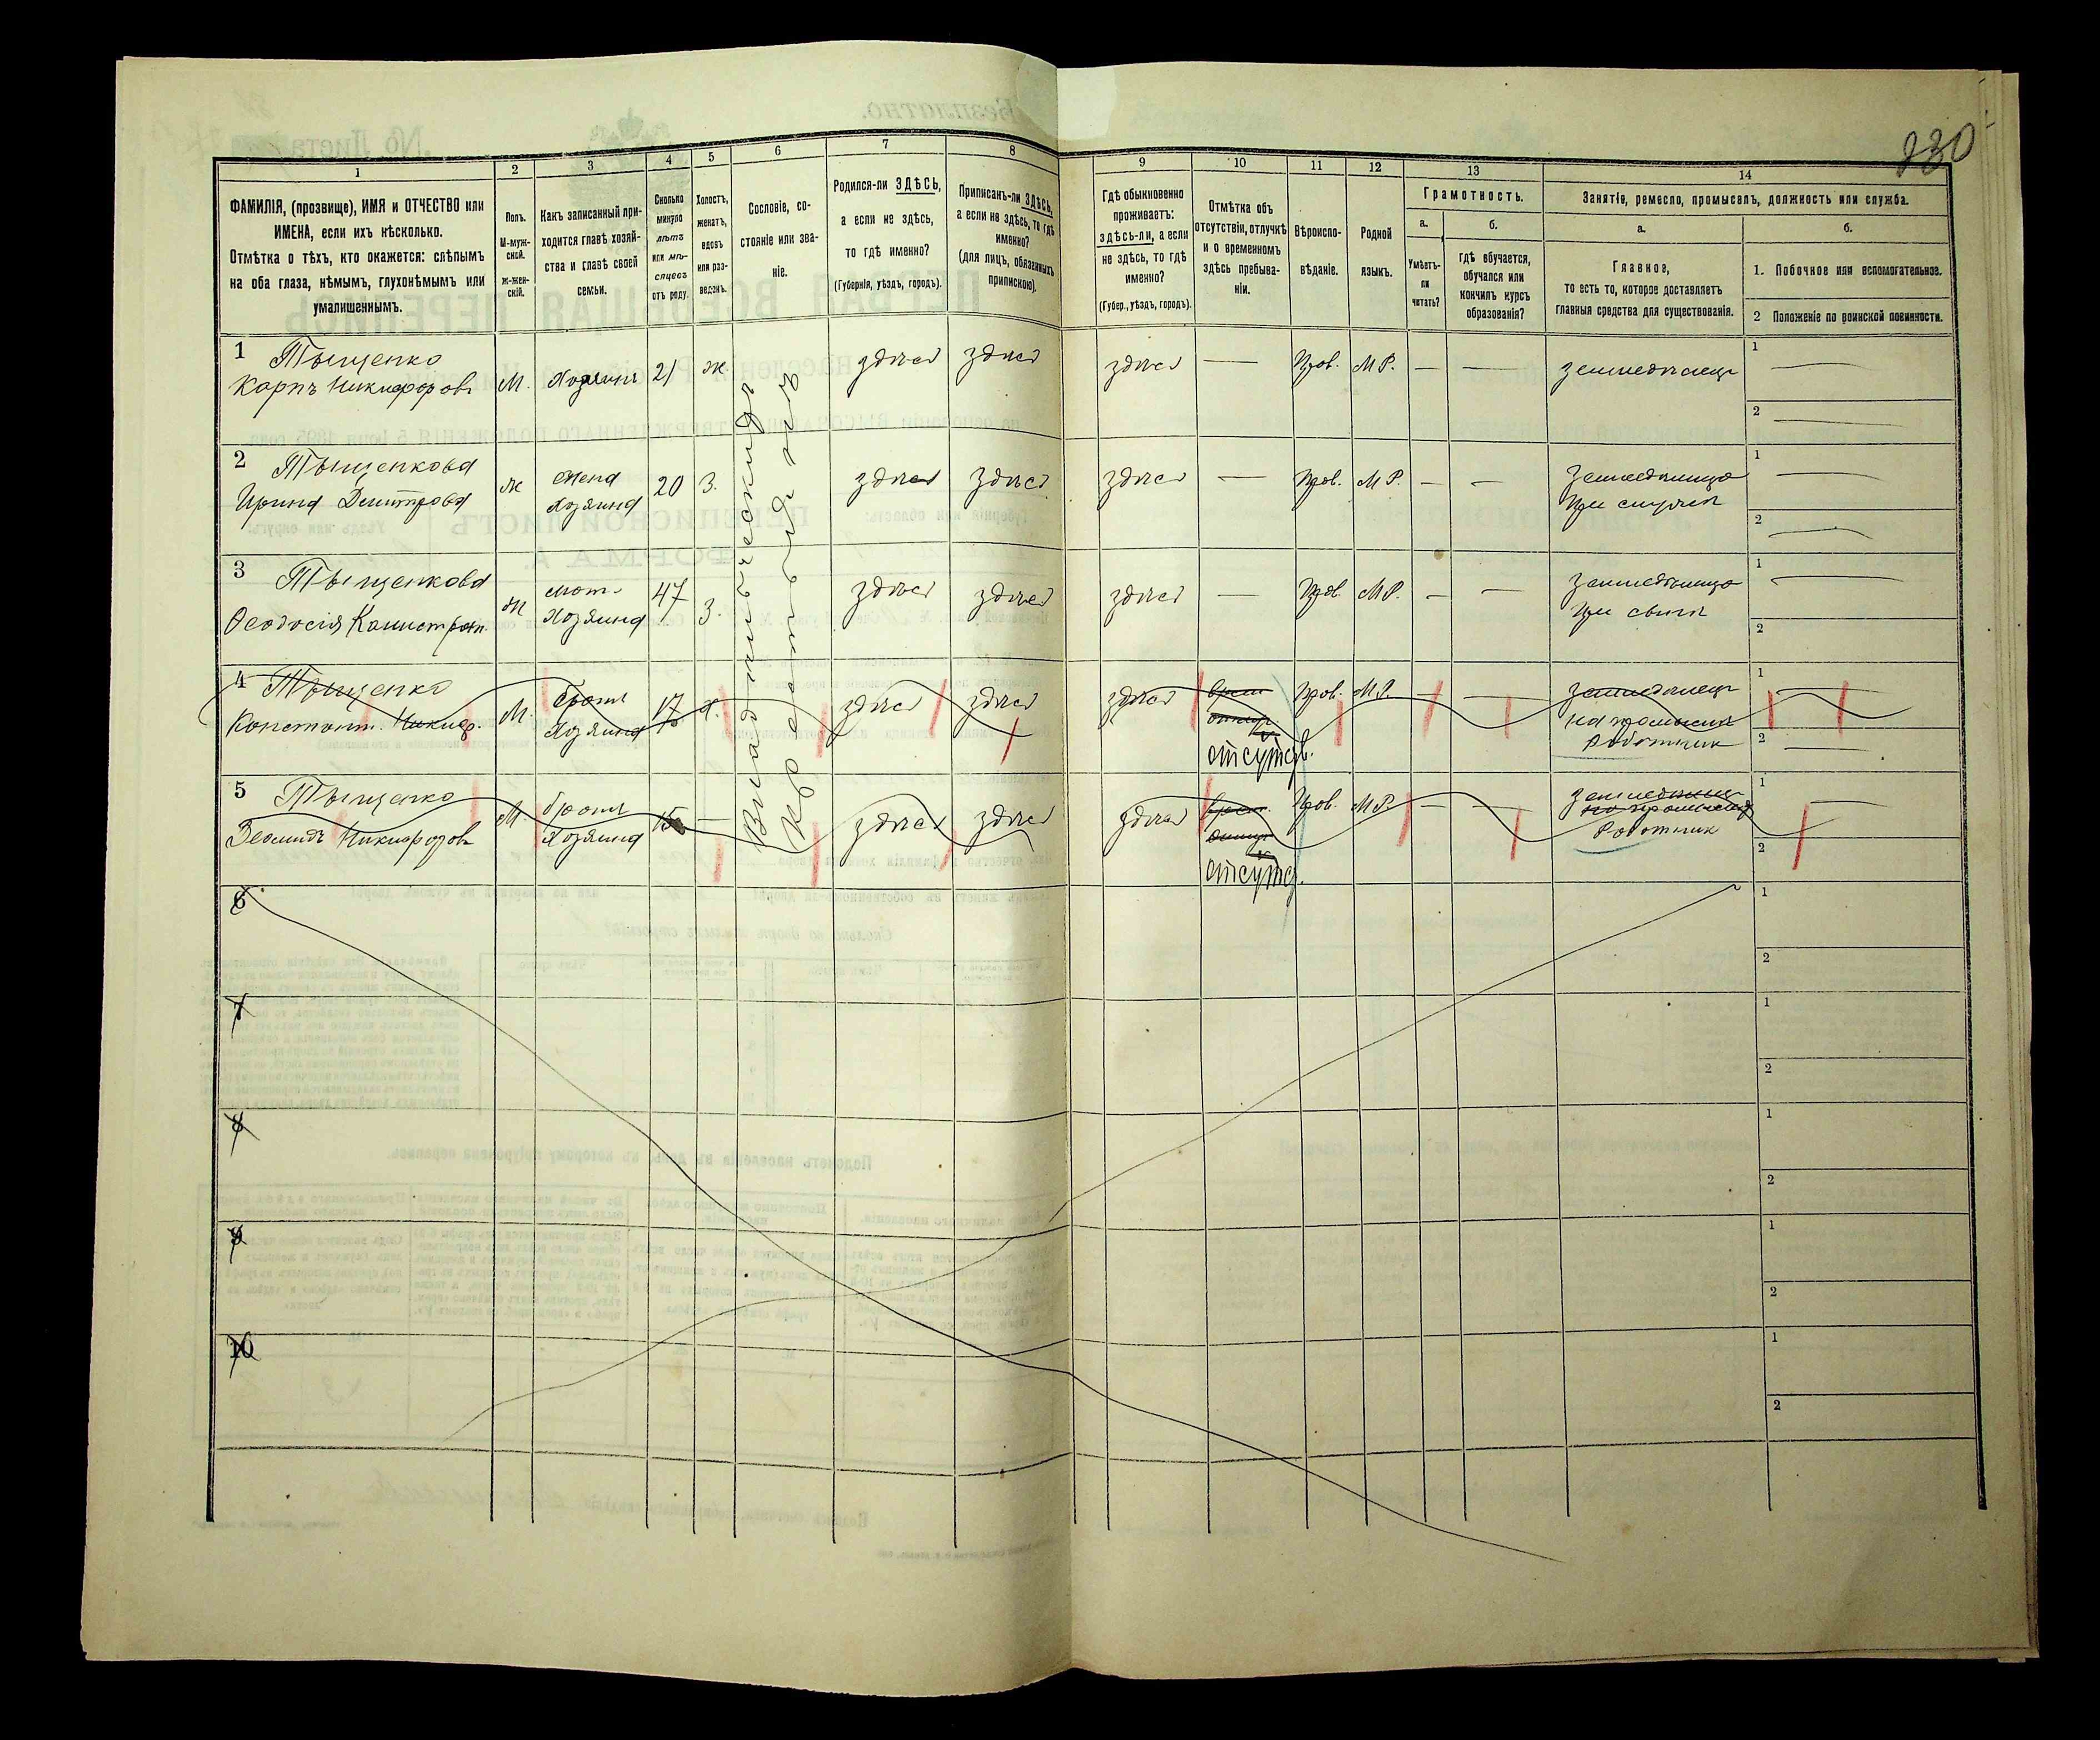 230
1
2
3
4
5
6
7
8
9
10
11
12
13
14
ФАМИЛІЯ, (прозвище), ИМЯ и ОТЧЕСТВО или
ИМЕНА, если ихъ нѣсколько.
Отмѣтка о тѣхъ, кто окажется: слѣпымъ
на оба глаза, нѣмымъ, глухонѣмымъ или
умалишеннымъ.
Полъ.
М-муж-
ской.
Ж-жен-
скій.
Какъ записанный при-
ходится главѣ хозяй-
ства и главѣ своей
семьи.
Сколько
минуло
лѣтъ
или мѣ-
сяцевъ
отъ роду.
Холостъ,
женатъ,
вдовъ
или раз-
веденъ.
Сословіе, со-
стояніе или зва-
ніе.
Родился-ли ЗДѢСЬ,
а если не здѣсь,
то гдѣ именно?
(Губернія, уѣздъ, городъ).
Приписанъ-ли ЗДѢСЬ,
а если не здѣсь, то гдѣ
именно?
(для лицъ, обязанныхъ
припискою).
Гдѣ обыкновенно
проживаетъ:
здѣсь-ли, а если
не здѣсь, то гдѣ
именно?
(Губер., уѣздъ, городъ).
Отмѣтка объ
отсутствіи, отлучкѣ
и о временномъ
здѣсь пребыва-
ніи.
Вѣроиспо-
вѣданіе.
Родной
языкъ.
Грамотность.
а.
б.
Умѣетъ-
ли
читать?
гдѣ обучается,
обучался или
кончилъ курсъ
образованія?
Занятіе, ремесло, промыселъ, должность или служба.
а.
б.
Главное,
то есть то, которое доставляетъ
главныя средства для существованія.
1. Побочное или вспомогательное.
2 Положеніе по воинской повинности.
1 Тыщенко
Карпъ Никифоровъ
М. Хозяинъ 21 ж
здѣсь здѣсь здѣсь — Прав. М.Р. — — земледѣлецъ
1 —
2 —
2 Тыщенкова
Ирина Дмитрова
ж жена
Хозяина
20 З.
здѣсь здѣсь здѣсь — Прав. М.Р. — —
1 —
2 —
3 Тыщенкова
Ѳеодосія
ж мать
Хозяина
47 З.
здѣсь здѣсь здѣсь — Прав. М.Р. — —
1 —
2
4 Тыщенко
Константъ Никиф.
М. братъ
Хозяина
17 Х.
здѣсь здѣсь здѣсь
отсутств.
Прав. М.Р. — — земледѣлецъ
Работникъ
1 —
2 —
5 Тыщенко
Никифоровъ
М. братъ
Хозяина
15 —
здѣсь здѣсь здѣсь
отсутств.
Прав. М.Р. — —
Работникъ
1 —
2
Владѣльческихъ
Крестьянъ
6
1
2
7
1
2
8
1
2
9
1
2
10
1
2